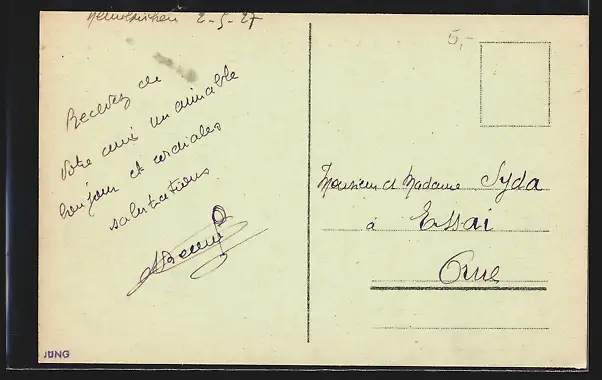 Neunkirchen 2-5-27
5,-
Recevez de
votre ami un aimable
bonjour et cordiales
salutations
Monsieur et Madame Syda
à Essai
Orne
JUNG